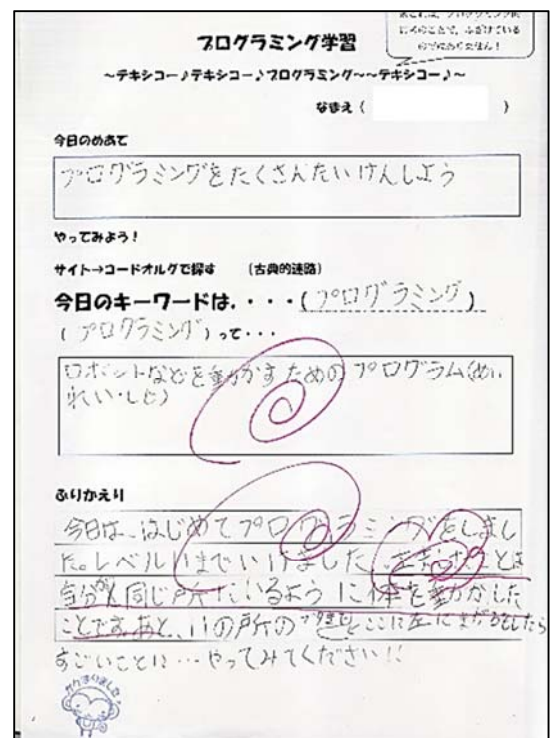 プログラミング学習
～テキシコー♪テキシコー♪プログラミング～～テキシコー♪～
なまえ（　　　）
今日のめあて
プログラミングをたくさんたいけんしよう
やってみよう！
サイト→コードオルグで探す　（古典的迷路）
今日のキーワードは．・・・（プログラミング）
（プログラミング）って・・・
ロボットなどを動かすためのプログラム（めい
れい・しじ）
ふりかえり
今日は、はじめてプログラミングをしまし
た。レベル11までいけました。
自分が同じ所にいるように体を動かした
ことです。あと、11の所の ここに左にまがるをしたら
すごいことに…やってみてください!!